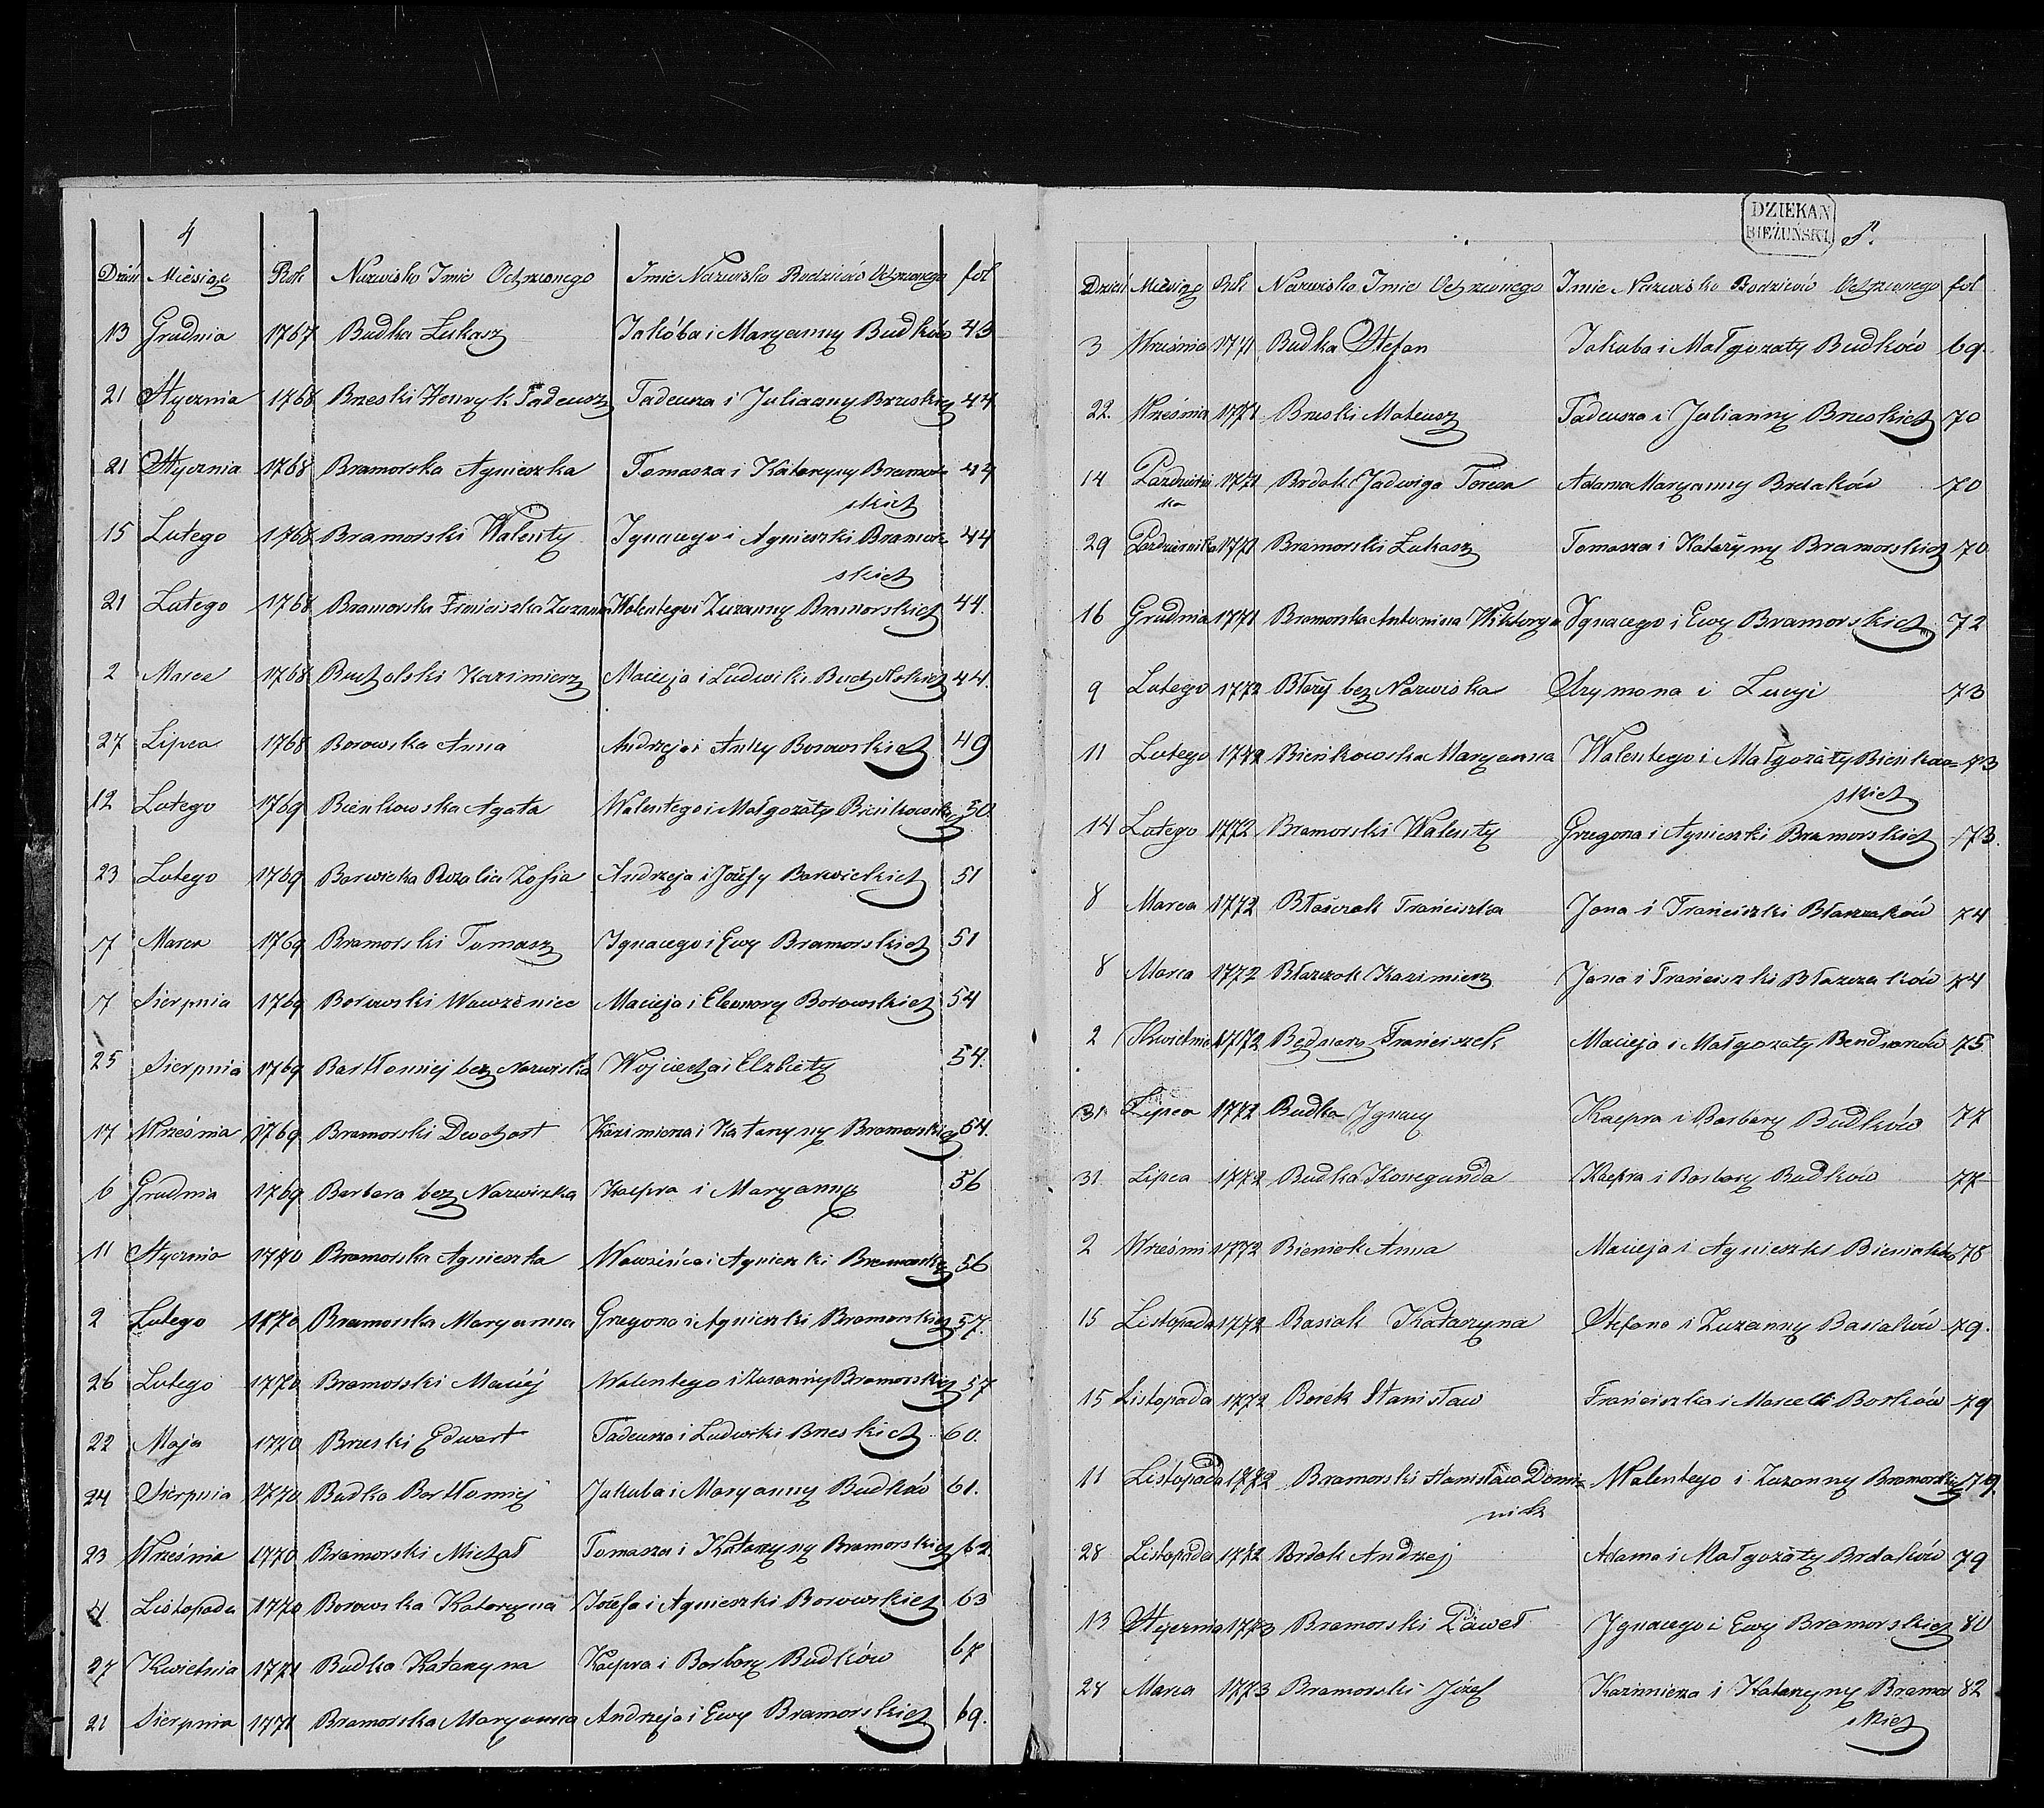 4
Dzień Miesiąc Rok Nazwisko Imie Ochrzconego Imie Nazwisko Rodziców Ochrzconego fol
13 Grudnia 1767 Budka Łukasz Jakóba i Maryanny Budków 43
21 Stycznia 1768 Brzeski Henryk Tadeusz Tadeusza i Julianny Brzeskich 44
21 Stycznia 1768 Bramorska Agnieszka Tomasza i Katarzyny Bramor=
skich 44
15 Lutego 1768 Bramorski Walenty Ignacego i Agnieszki Bramor=
skich 44
21 Lutego 1768 Bramorska Franciszka Zuzanna Walentego i Zuzanny Bramorskich 44.
2 Marca 1768 Bucholski Kazimierz Macieja i Ludwiki 44.
27 Lipca 1768 Borowska Anna Andrzeja i Anny Borowskich 49
12 Lutego 1769 Bienkowska Agata Walentego i Małgorzaty Bienkowskich 50.
23 Lutego 1769 Barwicka Rozalia Zofia Andrzeja i Józefy Barwickich 51
7 Marca 1769 Bramorski Tomasz Ignacego i Ewy Bramorskich 51
7 Sierpnia 1769 Borowski Wawrzeniec Macieja i Eleonory Borowskich 54
25 Sierpnia 1769 Bartłomiej bez Nazwiska Wojciecha i Elzbiety 54.
17 Września 1769 Bramorski Kazimierza i Katarzyny Bramorskich 54.
6 Grudnia 1769 Barbara bez Nazwiska Kacpra i Maryanny 56
11 Stycznia 1770 Bramorska Agnieszka Wawrzińca i Agnieszki Bramorskich 56
2 Lutego 1770 Bramorska Maryanna Grzegorza i Agnieszki Bramorskich 57.
26 Lutego 1770 Bramorski Maciej Walentego i Zuzanny Bramorskich 57
22 Maja 1770 Brzeski Edwart Tadeusza i Ludwiki Brzeskich 60.
24 Sierpnia 1770 Budka Bartłomiej Jakuba i Maryanny Budków 61.
23 Września 1770 Bramorski Michał Tomasza i Katarzyny Bramorskich 62.
4 Listopada 1770 Borowska Katarzyna Józefa i Agnieszki Borowskich 63
27 Kwietnia 1771 Budka Katarzyna Kacpra i Barbary Budków 67
21 Sierpnia 1771 Bramorska Maryanna Andrzeja i Ewy Bramorskich 69.
DZIEKAN
BIEŻUŃSKI
5.
Dzień Miesiąc Rok Nazwisko Imie Ochrzconego Imie Nazwisko Rodziców Ochrzconego fol
3 Września 1771 Budka Stefan Jakuba i Małgorzaty Budków 69.
22. Września 1771 Brzeski Mateusz Tadeusza i Julianny Brzeskich 70
14 Pazdzierni
ka 1771 Brdak Jadwiga Teresa Adama Maryanny Brdaków 70
29 Pazdziernika 1771 Bramorski Łukasz Tomasza i Katarzyny Bramorskich 70
16 Grudnia 1771 Bramorska Antonina Wiktorya Ignacego i Ewy Bramorskich 72
9 Lutego 1772 Błaży bez Nazwiska Szymona i Lucyi 73
11 Lutego 1772 Bieńkowska Maryanna Walentego i Małgorzaty Bieńkow=
skich 73
14 Lutego 1772 Bramorski Walenty Grzegorza i Agnieszki Bramorskich 73.
8 Marca 1772 Błaśczak Franciszka Jana i Franciszki Błaszczaków 74
8 Marca 1772 Błaszczak Kazimierz Jana i Franciszki Błaszczaków 74
2 Kwietnia 1772 Będnarz Franciszek Macieja i Małgorzaty 75
31 Lipca 1772 Budka Ignacy Kacpra i Barbary Budków 77
31 Lipca 1772 Budka Konegunda Kacpra i Barbary Budków 77
2 Wrześni 1772 Bieniak Anna Macieja i Agnieszki Bieniaków 78
15 Listopada 1772 Basiak Katarzyna Stefana i Zuzanny Basiaków 79.
15 Listopada 1772 Borek Stanisław Franciszka i Marcelli Borków 79
11 Listopada 1772 Bramorski Stanisław Domi=
nik Walentego i Zuzanny Bramorskich 79.
28 Listopada 1772 Brdak Andrzej Adama i Małgorzaty Brdaków 79
13 Stycznia 1773 Bramorski Paweł Ignacego i Ewy Bramorskich 80
28 Marca 1773 Bramorski Józef Kazimierza i Katarzyny Bramor
skich 82